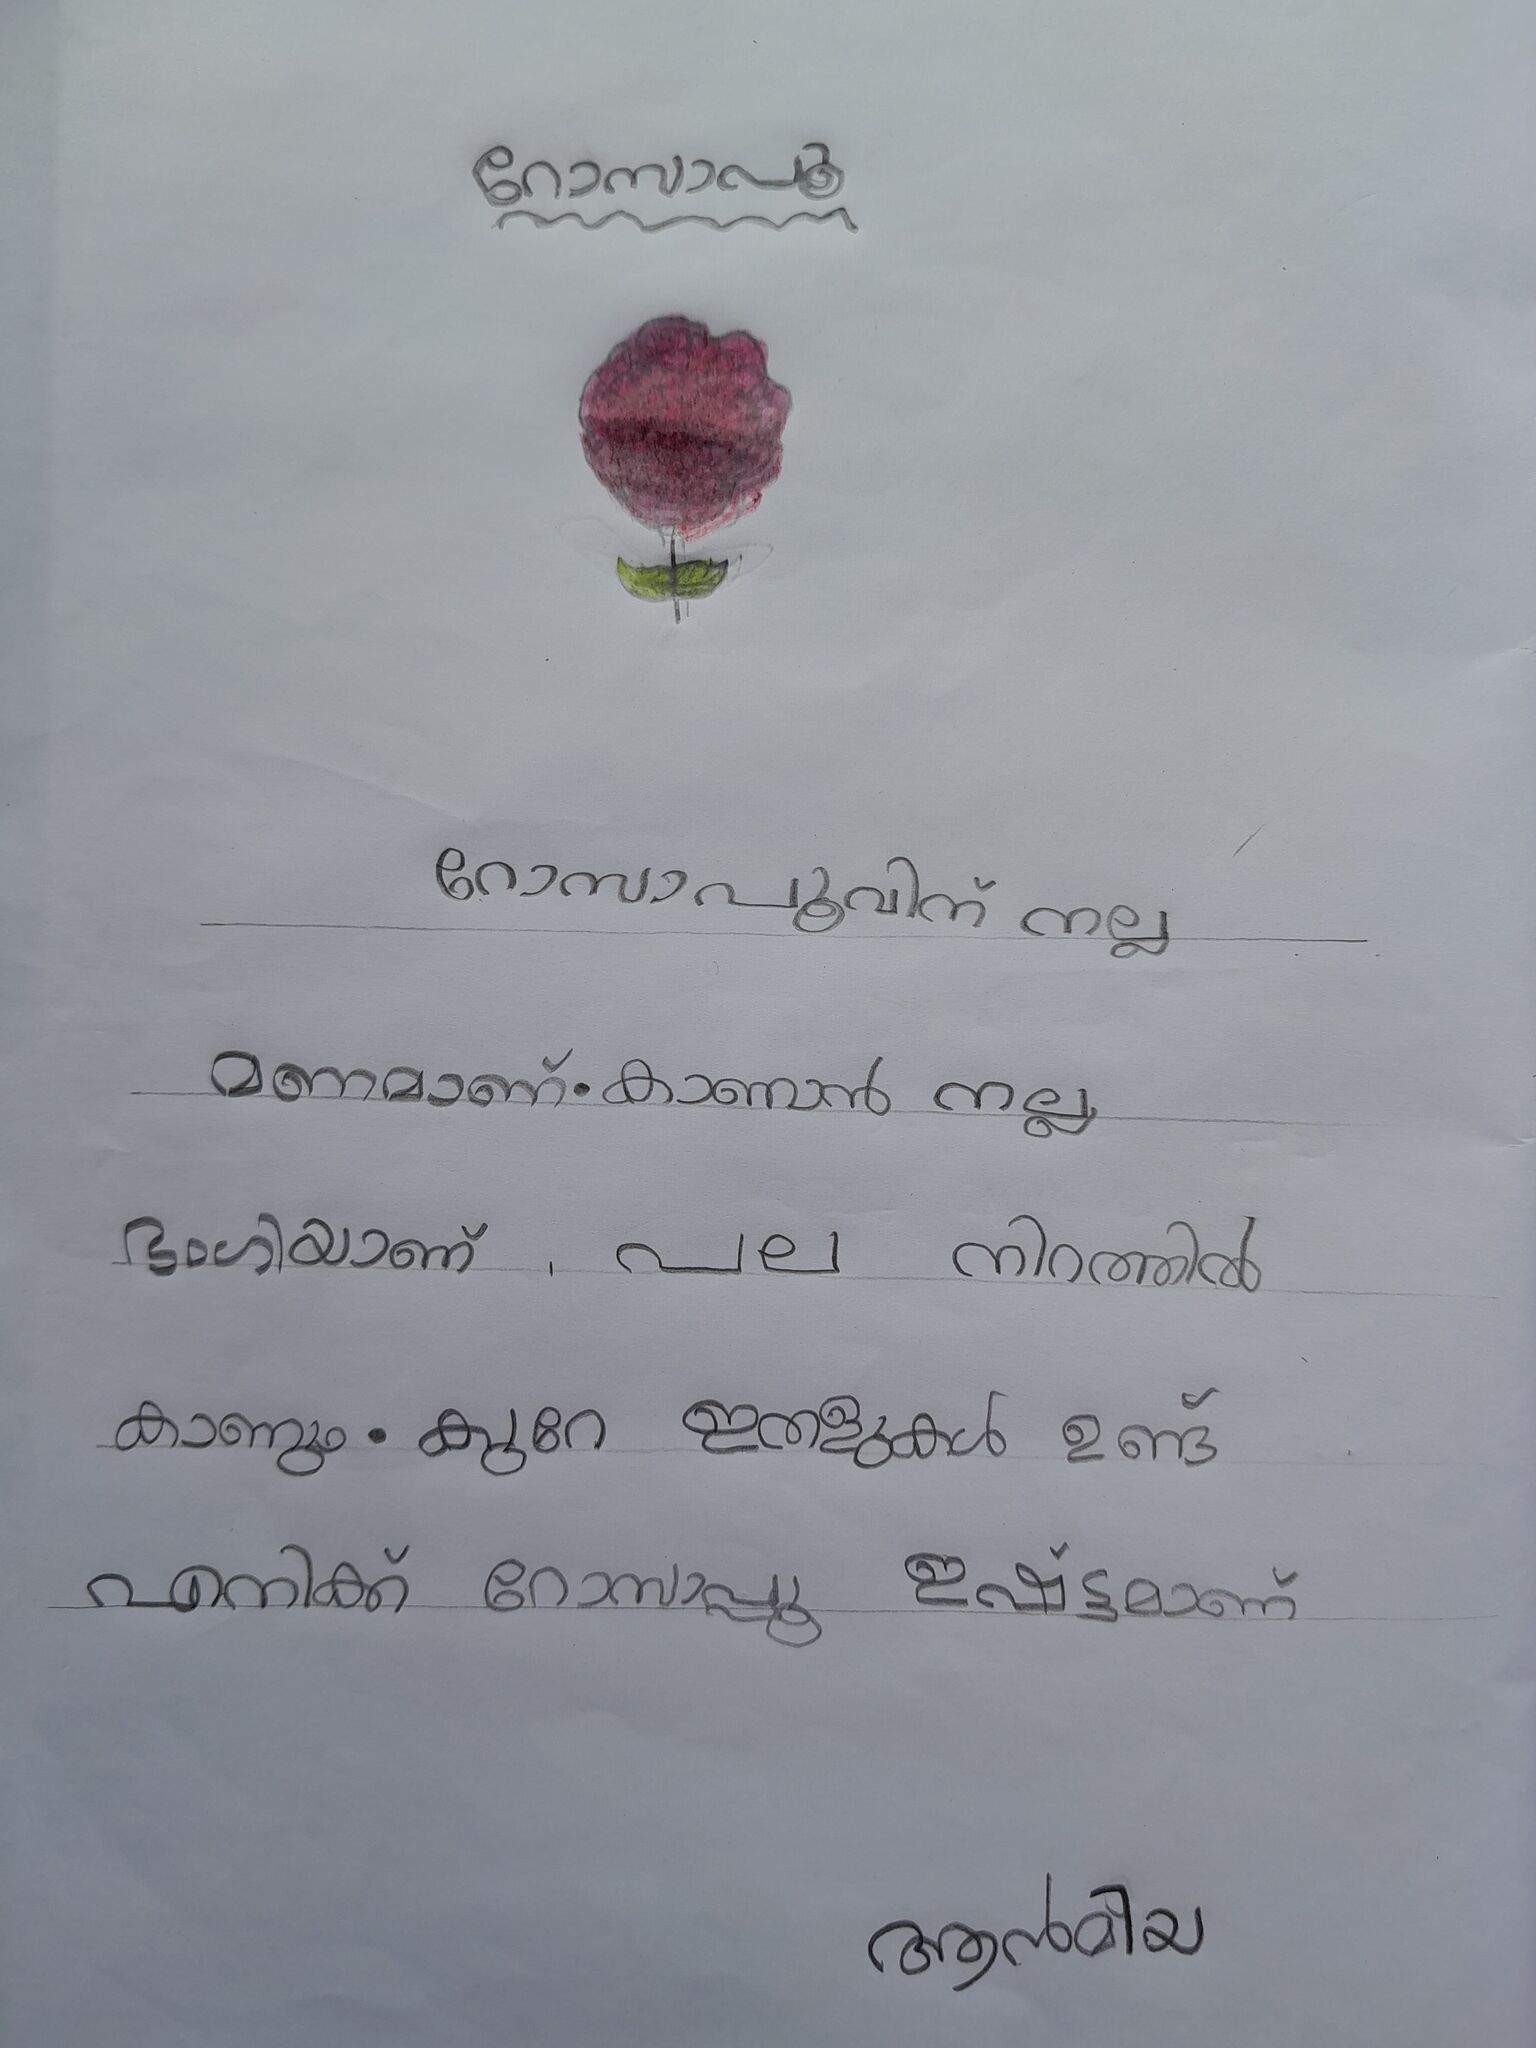 റോസാപൂ
റോസാപൂവിന് നല്ല
മണമാണ്. കാണാൻ നല്ല
ഭംഗിയാണ്. പല നിറത്തിൽ
കാണും. കുറേ ഇതളുകൾ ഉണ്ട്
എനിക്ക് റോസാപ്പൂ ഇഷ്ട്ടമാണ്
ആൻമീയ